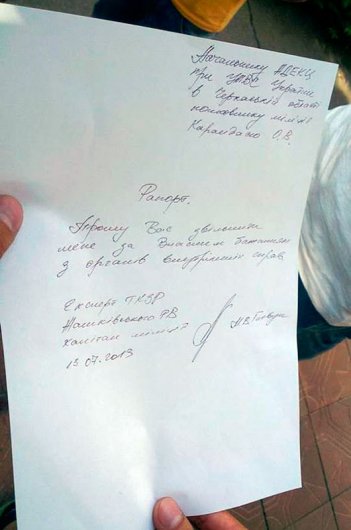 Начальнику НДЕКЦ
при УМВС України
в Черкаській області
полковнику міліції
Карандашо О.В.
Рапорт.
Прошу Вас звільнити
мене за власним бажанням
з органів внутрішніх справ
Експерт ТКЗР
Жашківського РВ
капітан міліції
15.07.2013